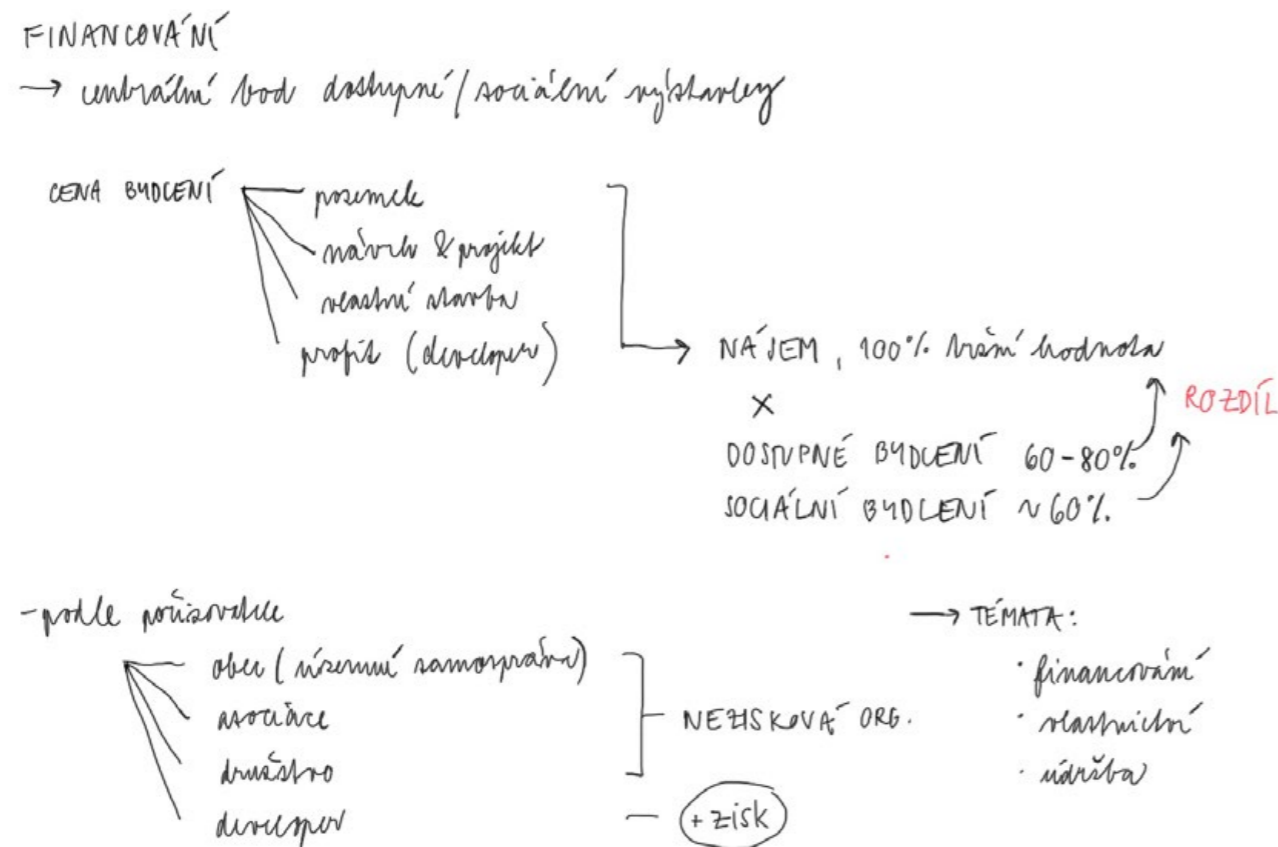 FINANCOVÁNÍ
→ centrální bod dostupné/sociální výstavby
CENA BYDLENÍ
pozemek
návrh & projekt
vlastní stavba
profit (developer)
→ NÁJEM, 100% tržní hodnota
×
ROZDÍL
DOSTUPNÉ BYDLENÍ 60-80%
SOCIÁLNÍ BYDLENÍ ~60%
- podle pořizovatele
obec (územní samospráva)
asociace
družstvo
NEZISKOVÁ ORG.
developer
— + zisk
→ TÉMATA:
· financování
· vlastnictví
· údržba